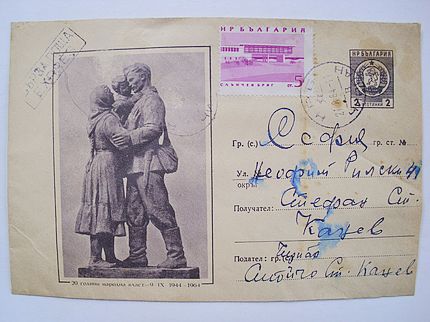 НР БЪЛГАРИЯ
СЛЪНЧЕВ БРЯГ
5
СТ.
Н.Р. БЪЛГАРИЯ
2 СТОТИНКИ 2
Гр. (с.) София гр. ст. №
Ул. Неофит Рилски
окръг
Получател: Стефан Ст.
Кацев
Подател: гр. (с.)
Ст. Кацев
20 години народна власт—9·IX 1944—1964